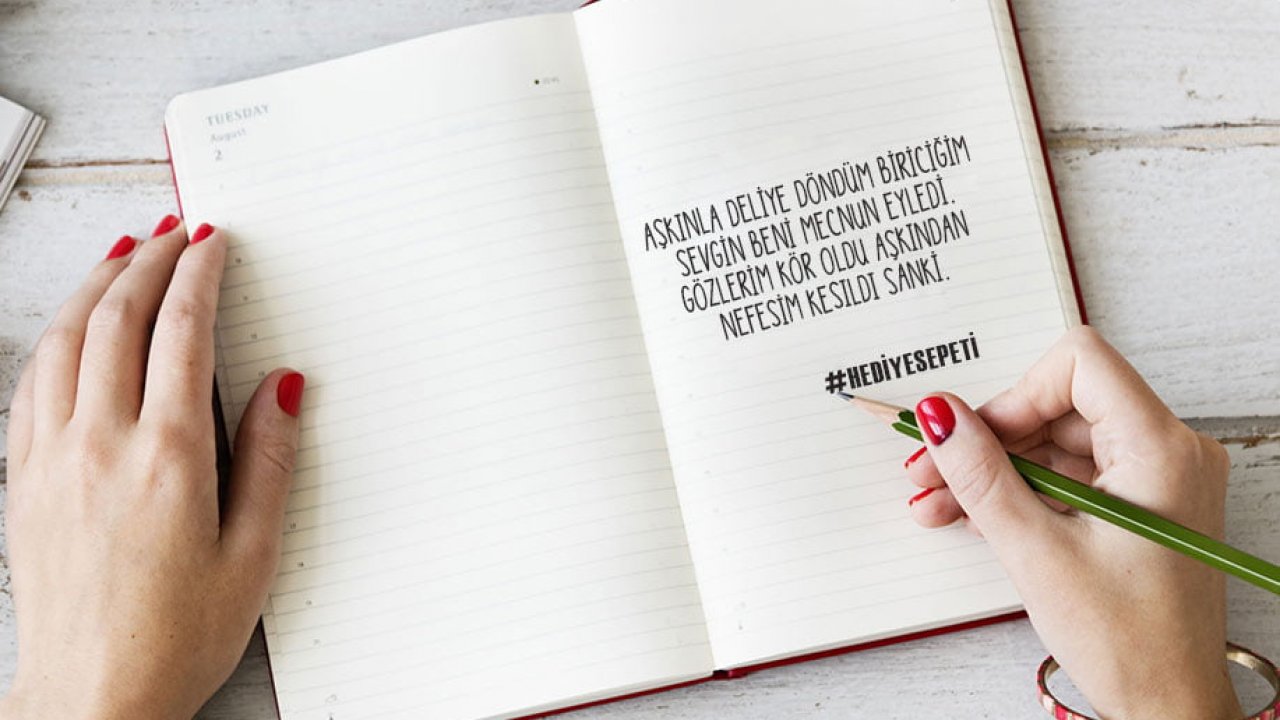 TUESDAY
August
2
AŞKINLA DELİYE DÖNDÜM BİRİCİĞİM
SEVGİN BENİ MECNUN EYLEDİ.
GÖZLERİM KÖR OLDU AŞKINDAN
NEFESİM KESILDI SANKİ.
#HEDİYESEPETİ